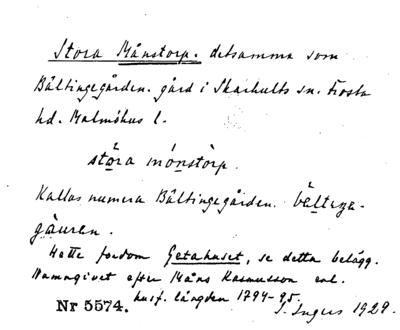 Stora Månstorp. detsamma som
Bältingegården. gård i Skarhults sn. Frosta
hd. Malmöhus l.
stōra mónstòrp.
Kallas numera Bältingegården. bä̀ltıŋa-
gå̀uren.
Hette fordom Getahuset, se detta belägg.
Namngivet efter Måns Rasmusson enl.
husf. längden 1794-95.
Nr 5574. I. Ingers 1929.